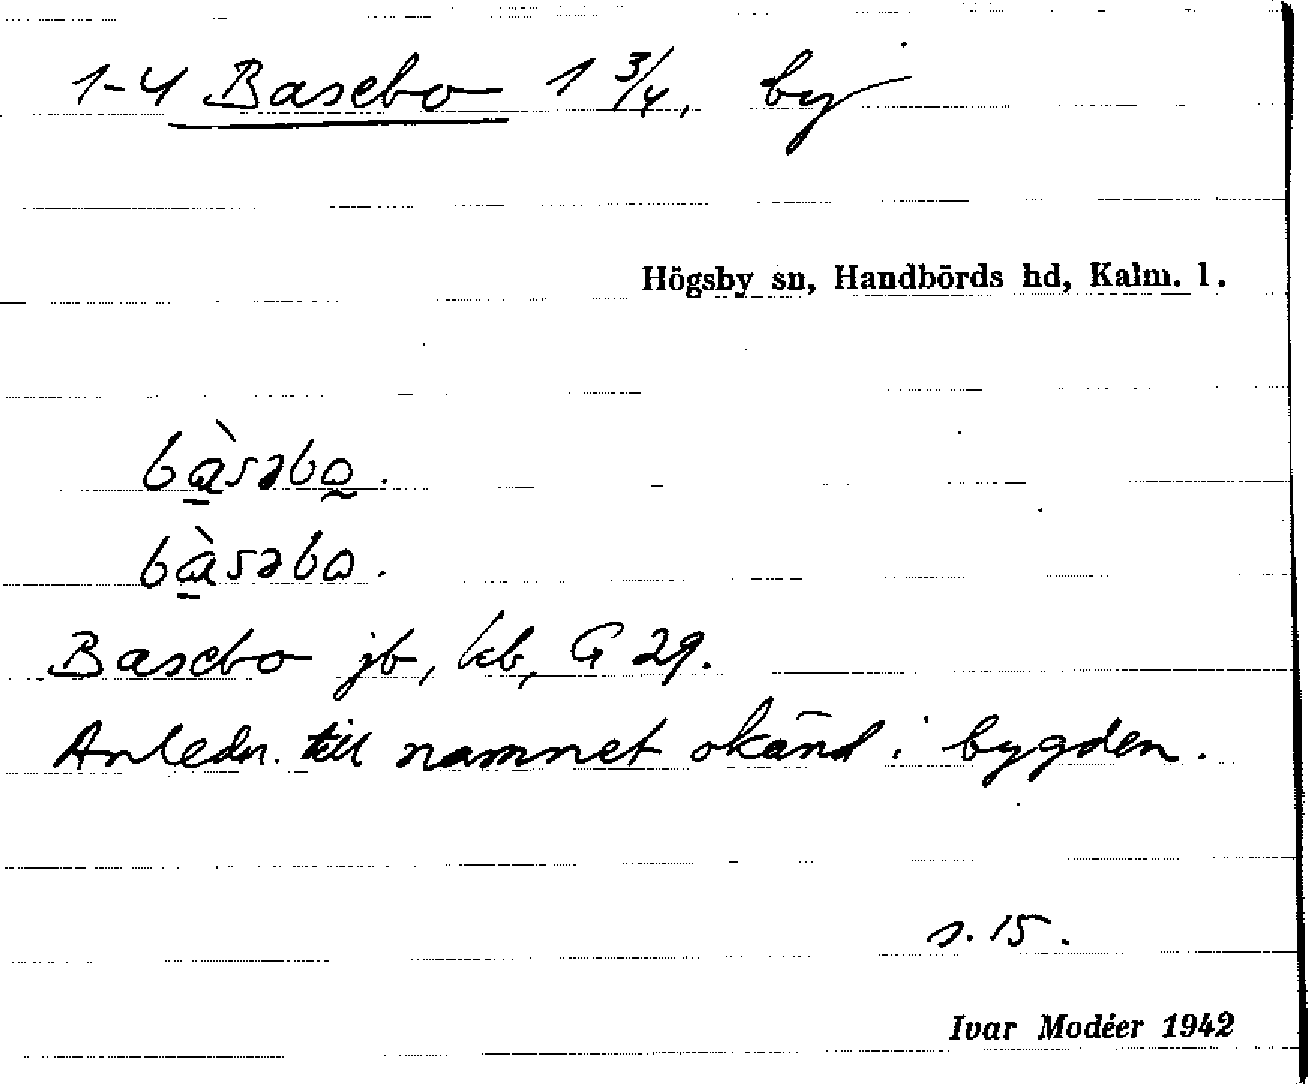 1-4 Basebo 1 3/4, by
Högsby sn, Handbörds hd, Kalm. l.
bàsəbo̰.
bàsəbo.
Basebo jb, kb, G 29.
Anledn. till namnet okänd i bygden.
s. 15.
Ivar Modéer 1942